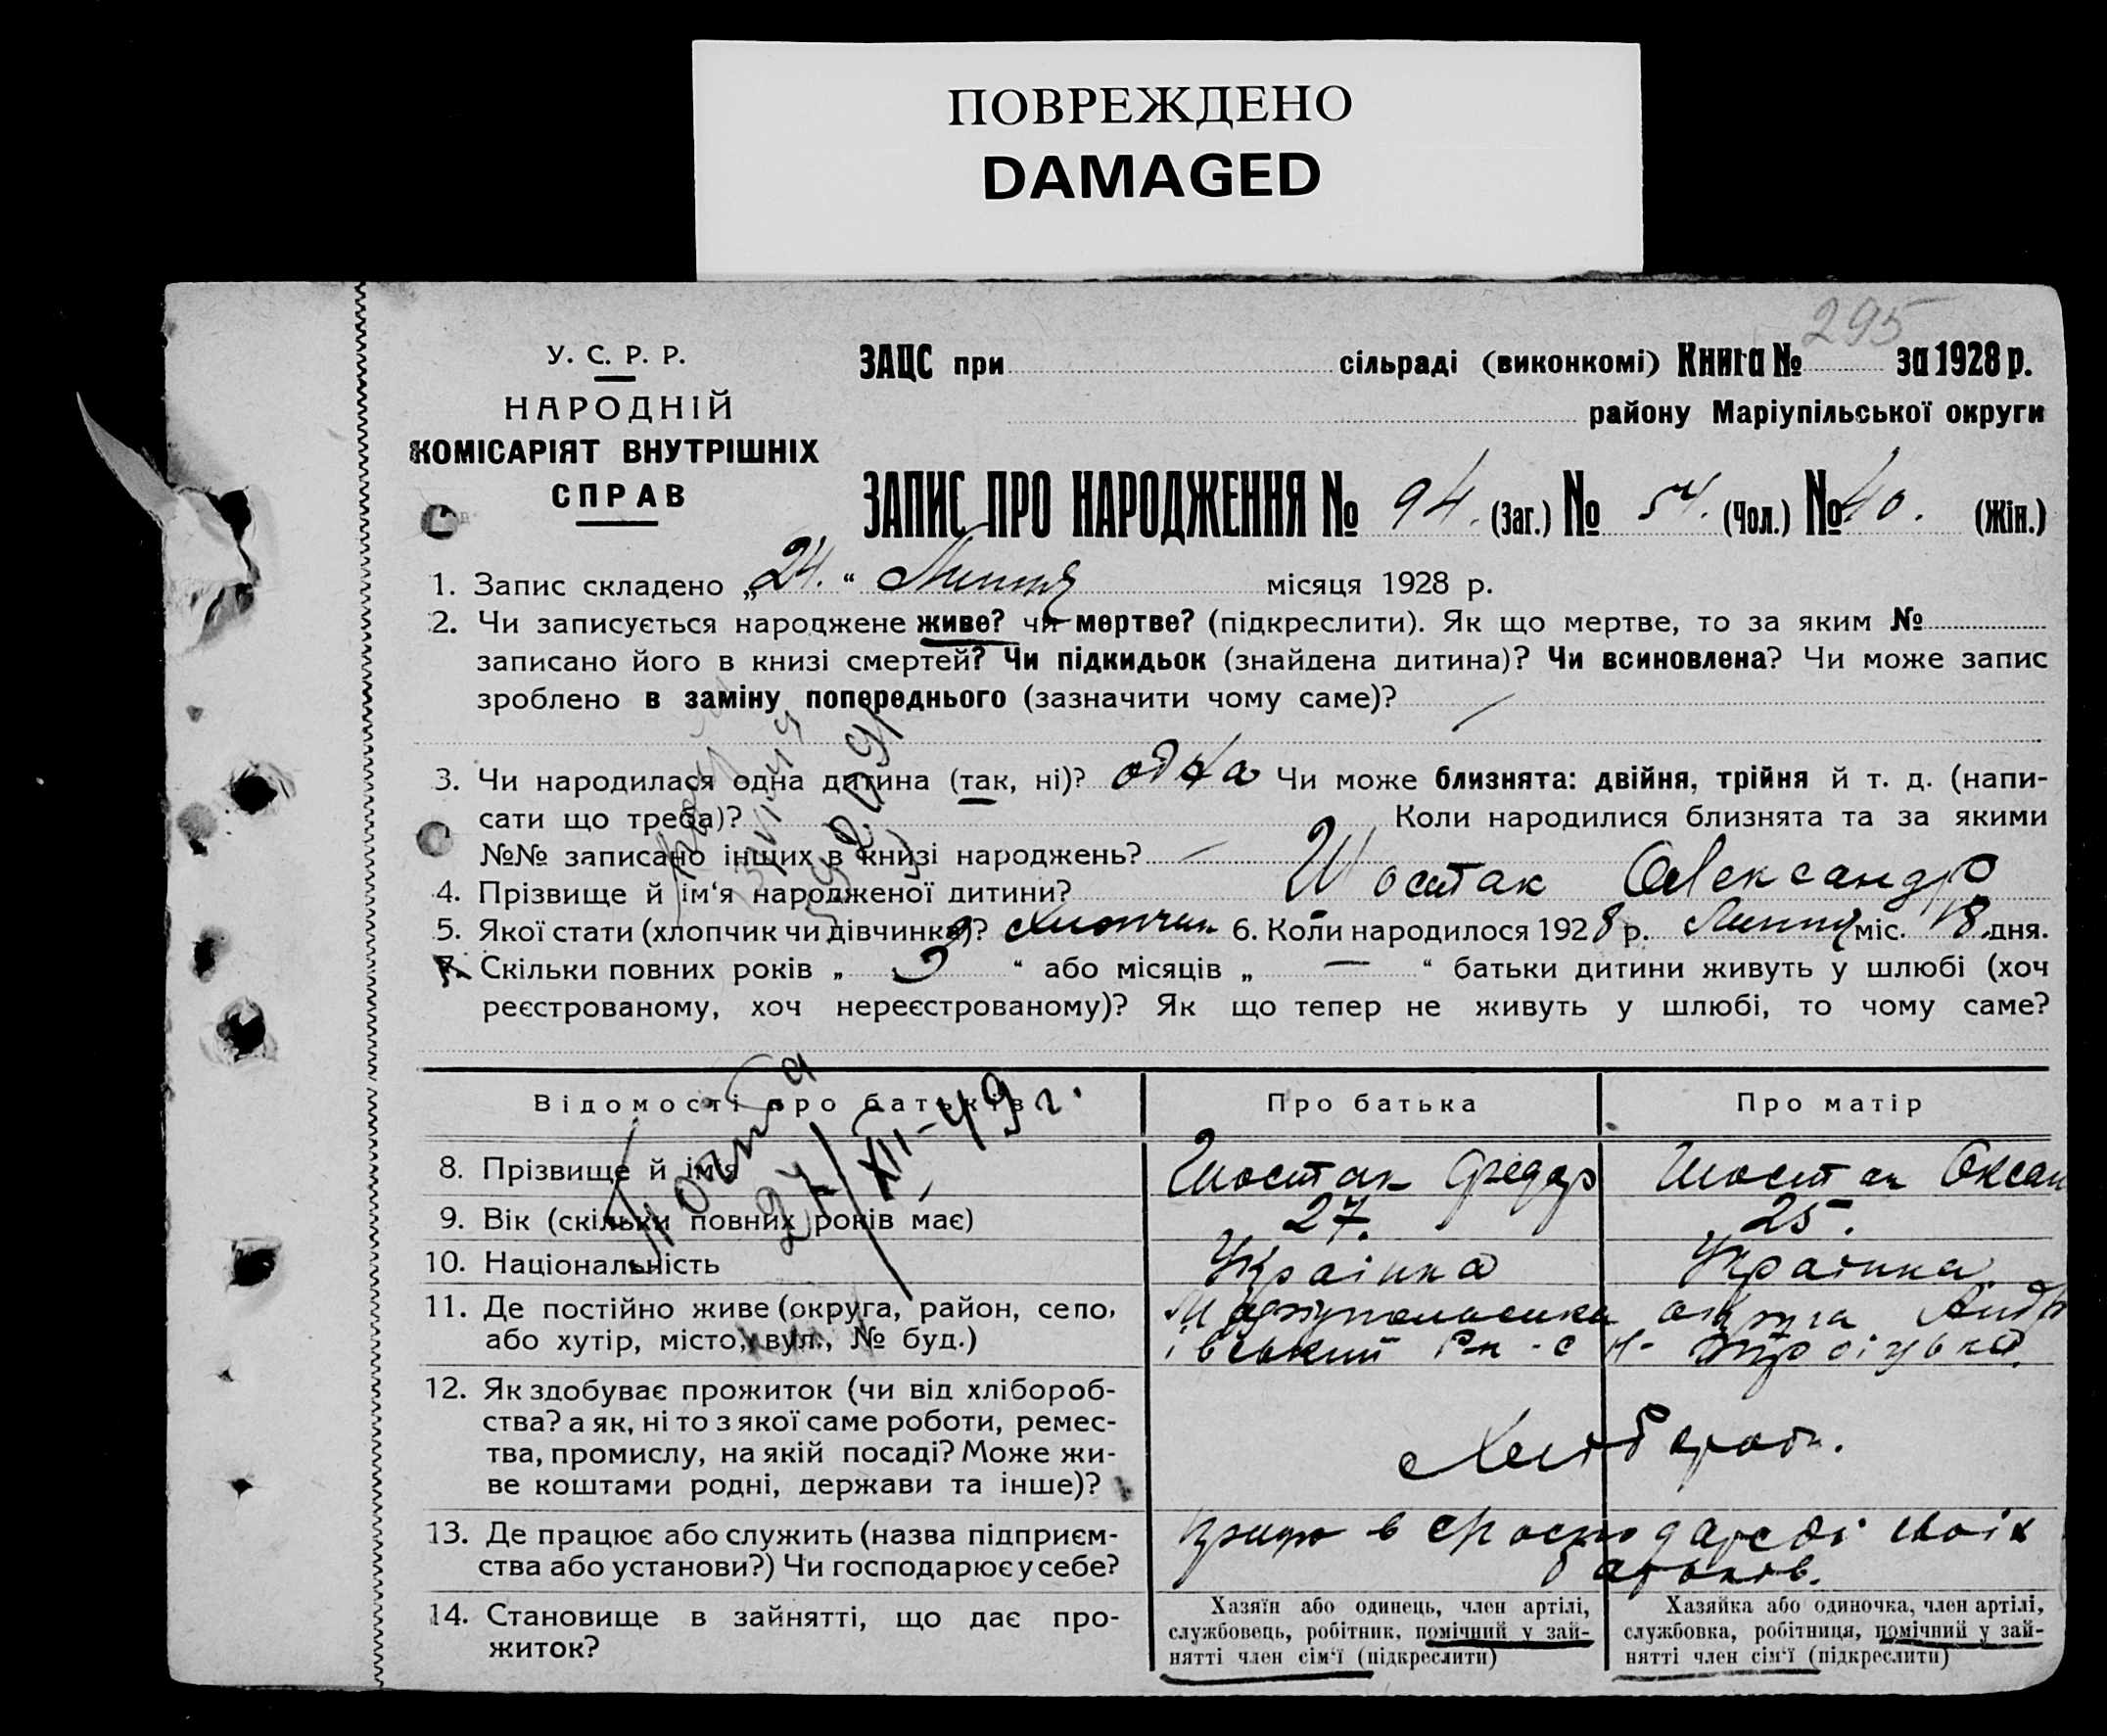 ПОВРЕЖДЕНО
DAMAGED
295
У. С. Р. Р.
НАРОДНІЙ
КОМІСАРІЯТ ВНУТРІШНІХ
СПРАВ
ЗАЦС при сільраді (виконкомі) Книга № за 1928 р.
району Маріупільської округи
ЗАПИС ПРО НАРОДЖЕННЯ № 94. (Заг.) № 54. (Чол.) № 40. (Жін.)
1. Запис складено „24.“ Липня місяця 1928 р.
2. Чи записується народжене живе? чи мертве? (підкреслити). Як що мертве, то за яким №
записано його в книзі смертей? Чи підкидьок (знайдена дитина)? Чи всиновлена? Чи може запис
зроблено в заміну попереднього (зазначити чому саме)?
3. Чи народилася одна дитина (так, ні)? одна Чи може близнята: двійня, трійня й т. д. (напи-
сати що треба)? Коли народилися близнята та за якими
№№ записано інщих в книзі народжень?
4. Прізвище й ім‘я народженої дитини? Шостак Олександр
5. Якої стати (хлопчик чи дівчинка)? Хлопчик 6. Коли народилося 1928 р. Липня міс. 18 дня.
7. Скільки повних років „ 3 “ або місяців „ — “ батьки дитини живуть у шлюбі (хоч
реєстрованому, хоч нереєстрованому)? Як що тепер не живуть у шлюбі, то чому саме?
Відомості про батьків Про батька Про матір
27/XII-49 г.
8. Прізвище й ім'я Шостак Федор Шостак Оксан
9. Вік (скільки повних років має) 27. 25.
10. Національність Українка Українка
11. Де постійно живе (округа, район, село, Маріупольська округа Андр
або хутір, місто, вул., № буд.) івський Рн - с Н- Троїцька
12. Як здобуває прожиток (чи від хлібороб-
ства? а як, ні то з якої саме роботи, ремес-
тва, промислу, на якій посаді? Може жи-
ве коштами родні, держави та інше)?
Хлібороб.
13. Де працює або служить (назва підприєм- в господарсві своїх
ства або установи?) Чи господарює у себе? батьків.
14. Становище в зайнятті, що дає про-
житок?
Хазяїн або одинець, член артілі,
службовець, робітник, помічний у зай-
нятті член сім‘ї (підкреслити)
Хазяйка або одиночка, член артілі,
службовка, робітниця, помічний у зай-
нятті член сім‘ї (підкреслити)